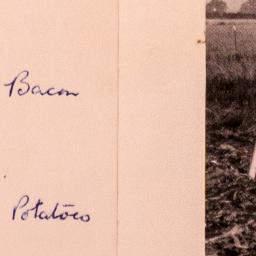 Bacon
Potatoes